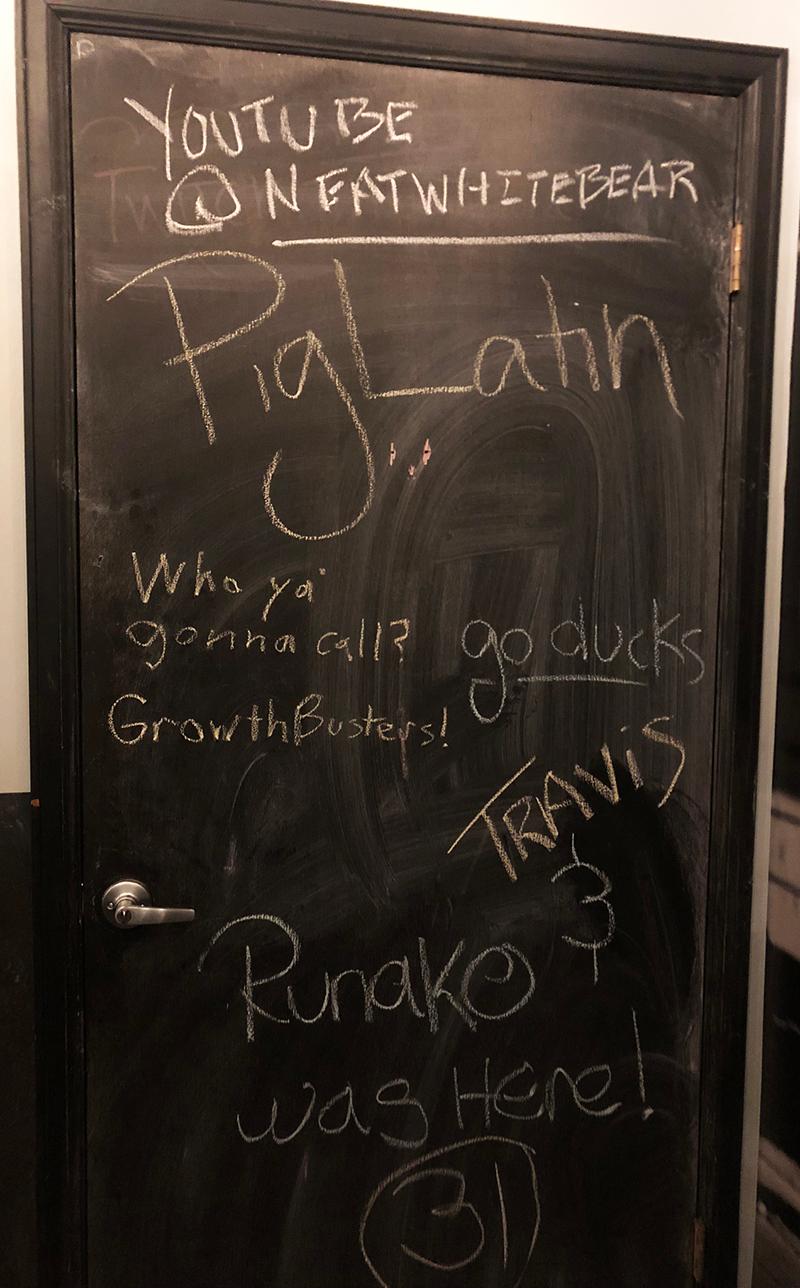 YOUTUBE
@NEATWHITEBEAR
PigLatin
Who ya'
gonna call?
GrowthBusters!
go ducks
TRAViS
&
Runako
was Here!
31